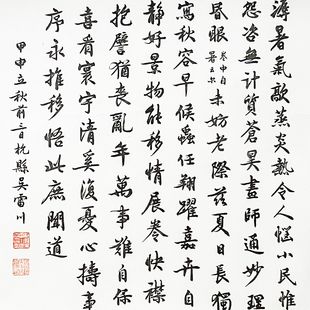 溽暑氣歊蒸炎熱令人惱小民惟
怨咨無計質蒼昊畫師通妙理
昏眼卷中自署云尔未妨老際茲夏日長獨
寫秋容早候蟲任翔躍嘉卉自
靜好景物能移情展卷快襟
抱譬猶喪亂年萬事難自保
喜看寰宇清奚復憂心擣事
序永推移悟此庶聞道
甲申立秋前三日杭縣吳雷川